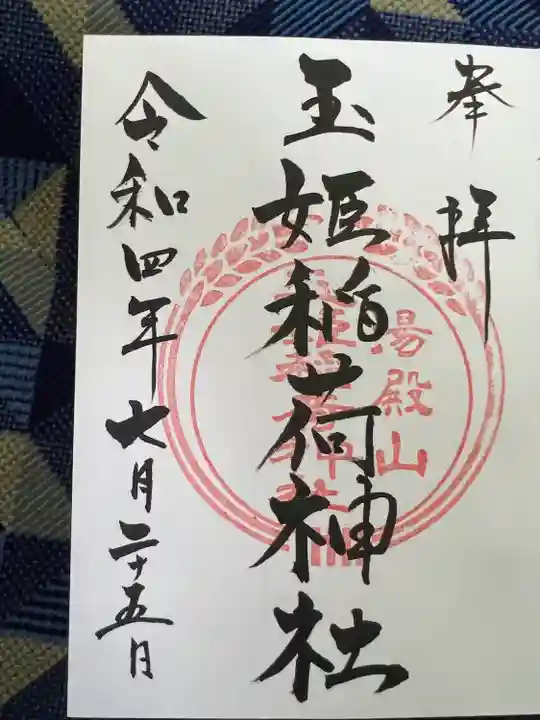 奉拝
玉姫稲荷神社
湯殿山
令和四年七月二十五日